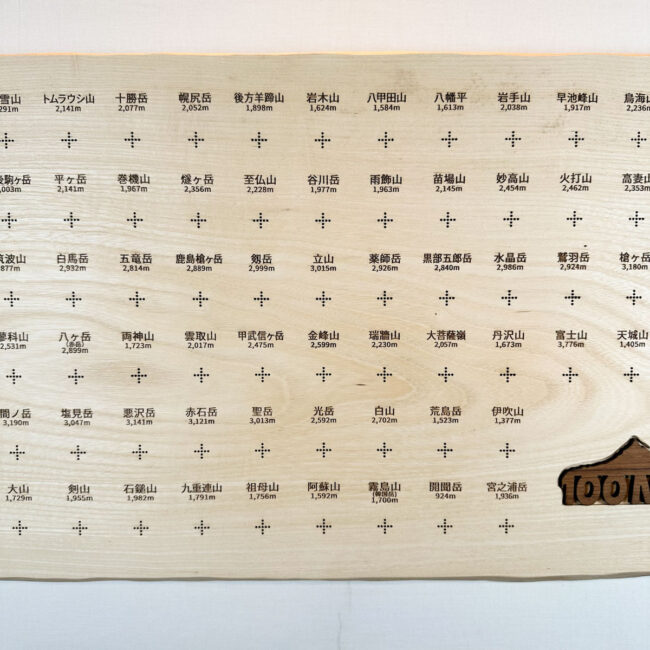 雪山 トムラウシ山 十勝岳 幌尻岳 後方羊蹄山 岩木山 八甲田山 八幡平 岩手山 早池峰山 鳥海山
291m 2,141m 2,077m 2,052m 1,898m 1,624m 1,584m 1,613m 2,038m 1,917m 2,236m
後駒ヶ岳 平ヶ岳 巻機山 燧ヶ岳 至仏山 谷川岳 雨飾山 苗場山 妙高山 火打山 高妻山
,003m 2,141m 1,967m 2,356m 2,228m 1,977m 1,963m 2,145m 2,454m 2,462m 2,353m
筑波山 白馬岳 五竜岳 鹿島槍ヶ岳 剱岳 立山 薬師岳 黒部五郎岳 水晶岳 鷲羽岳 槍ヶ岳
877m 2,932m 2,814m 2,889m 2,999m 3,015m 2,926m 2,840m 2,986m 2,924m 3,180m
蓼科山 八ヶ岳 両神山 雲取山 甲武信ヶ岳 金峰山 瑞牆山 大菩薩嶺 丹沢山 富士山 天城山
2,531m (赤岳) 2,899m 1,723m 2,017m 2,475m 2,599m 2,230m 2,057m 1,673m 3,776m 1,405m
間ノ岳 塩見岳 悪沢岳 赤石岳 聖岳 光岳 白山 荒島岳 伊吹山
3,190m 3,047m 3,141m 3,121m 3,013m 2,592m 2,702m 1,523m 1,377m
100M
大山 剣山 石鎚山 九重連山 祖母山 阿蘇山 霧島山 開聞岳 宮之浦岳
1,729m 1,955m 1,982m 1,791m 1,756m 1,592m (韓国岳) 1,700m 924m 1,936m